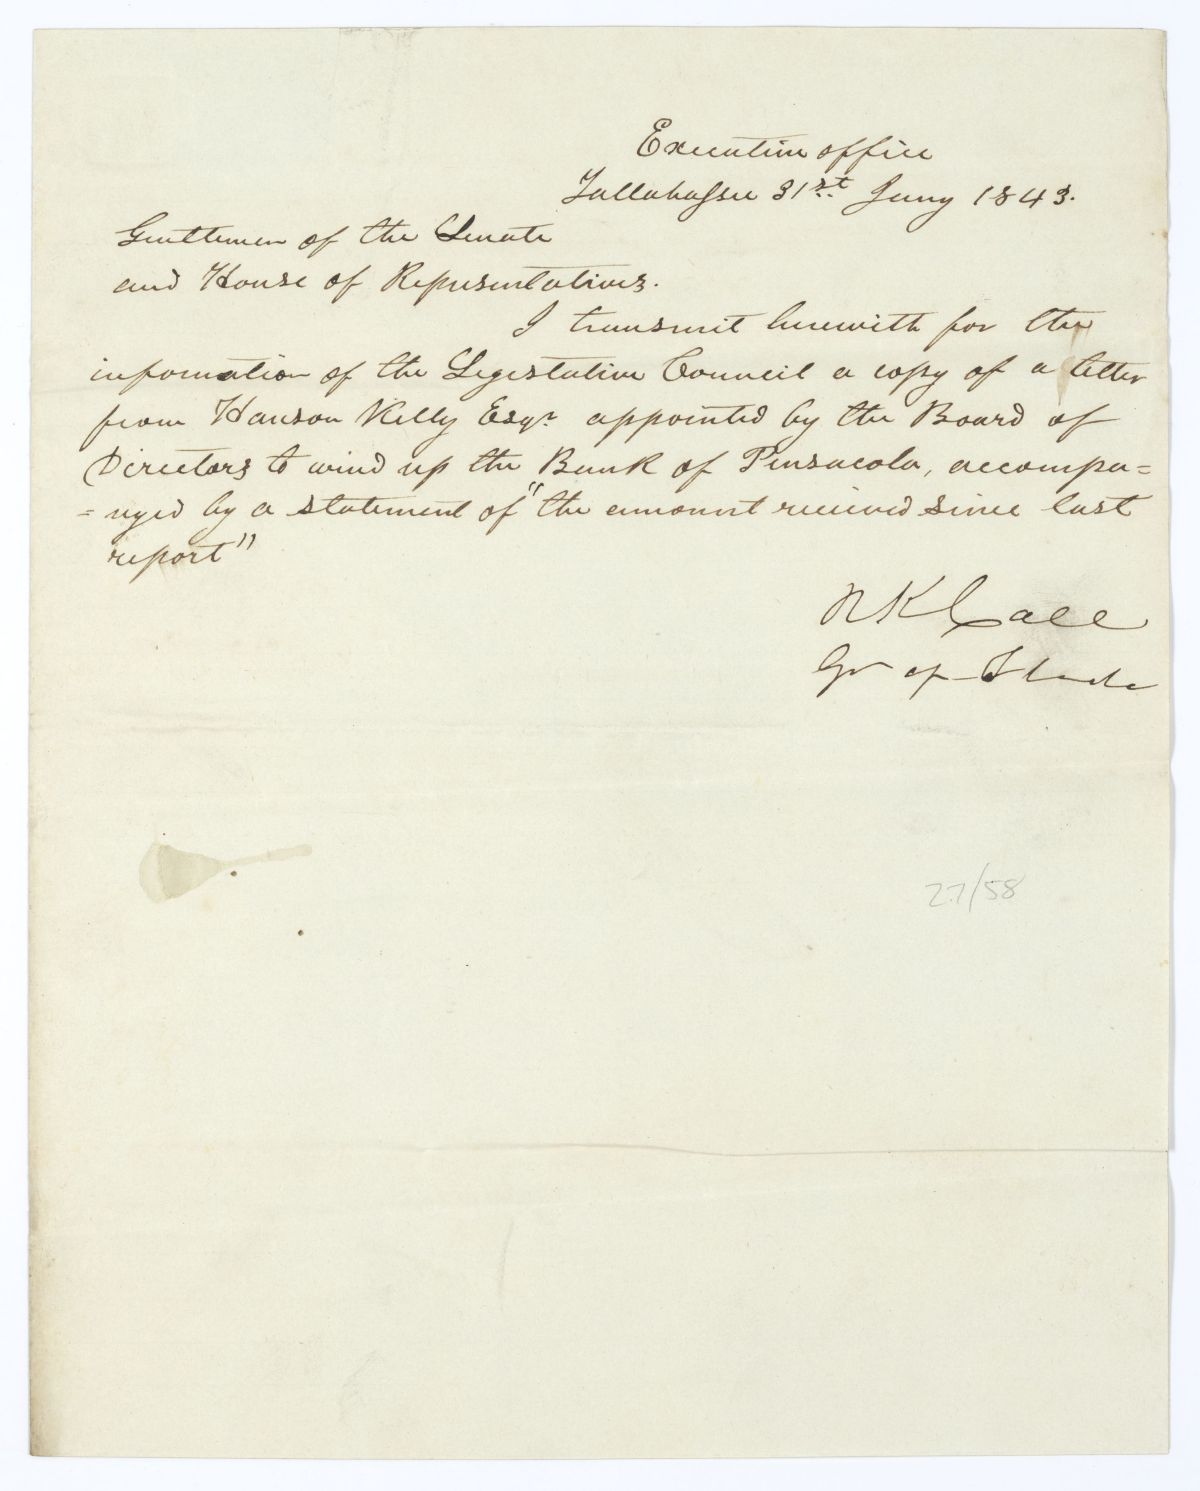 Executive office
Tallahassee 31st Jany 1843.
Gentlemen of the Senate
and House of Representatives.
I transmit herewith for the
information of the Legislative Council a copy of a letter
from Hanson Kelly Esqr appointed by the Board of
Directors to wind up the Bank of Pensacola, accompa=
=nyed by a statement of "the amount received since last
report"
R K Call
Gov of Florida
27/58